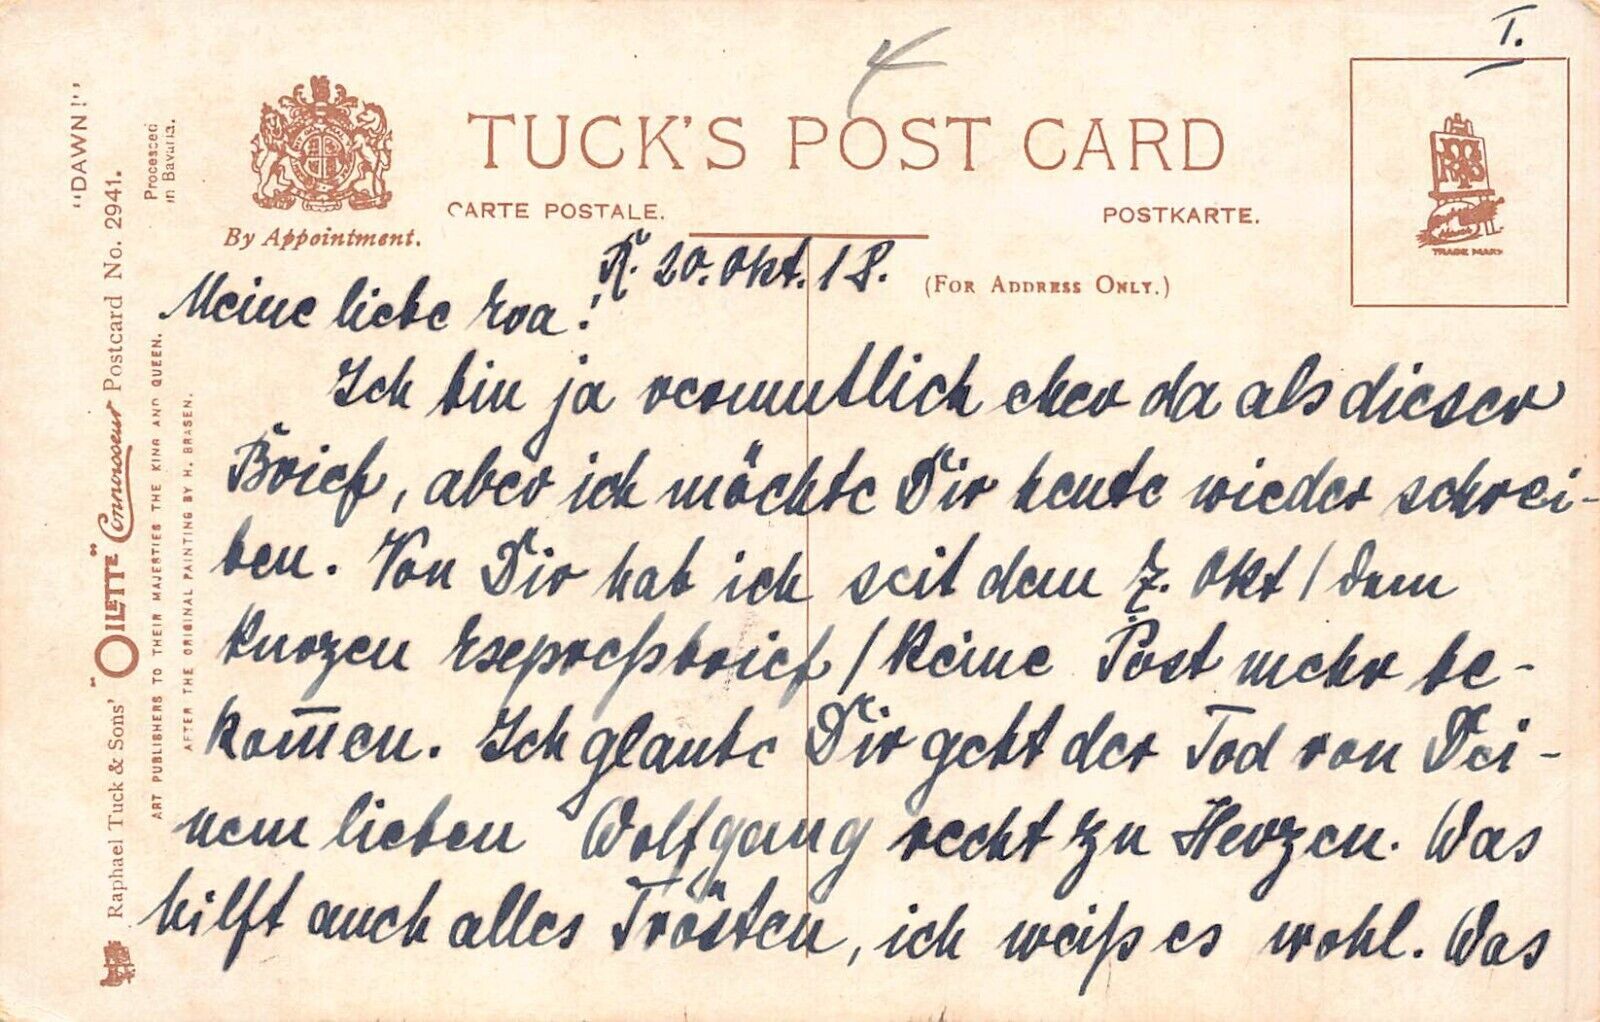 I.
4
TUCK'S POST CARD
CARTE POSTALE.
POSTKARTE.
By Appointment.
(FOR ADDRESS ONLY.)
TRADE MARK
"DAWN!"
Processed
in Bavaria.
Raphael Tuck & Sons' "OILETTE" Connoisseur Postcard No. 2941.
ART PUBLISHERS TO THEIR MAJESTIES THE KING AND QUEEN.
AFTER THE ORIGINAL PAINTING BY H. BRASEN.
R. 20. Okt. 18.
Meine liebe Eva!
Ich bin ja vermutlich eher da als dieser
Brief, aber ich möchte Dir heute wieder schrei-
ben. Von Dir hab ich seit dem 7. Okt / dem
kurzen Esepreßbrief / keine Post mehr be-
kom̅en. Ich glaube Dir geht der Tod von Dei-
nem lieben Wolfgang recht zu Herzen. Was
hilft auch alles Trösten, ich weiß es wohl. Was